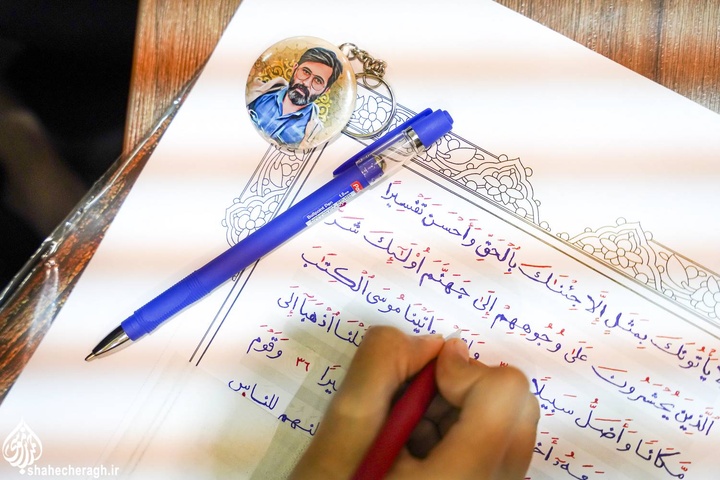 يَأْتُونَكَ بِمَثَلٍ إِلَّا جِئْنَٰكَ بِالْحَقِّ وَأَحْسَنَ تَفْسِيرًا
الَّذِينَ يُحْشَرُونَ عَلَىٰ وُجُوهِهِمْ إِلَىٰ جَهَنَّمَ أُوْلَٰٓئِكَ شَرٌّ
مَّكَانًا وَأَضَلُّ سَبِيلًا ءَاتَيْنَا مُوسَى الْكِتَٰبَ
اذْهَبَآ إِلَى
٣٦ وَقَوْمَ
لِلنَّاسِ
shahecheragh.ir